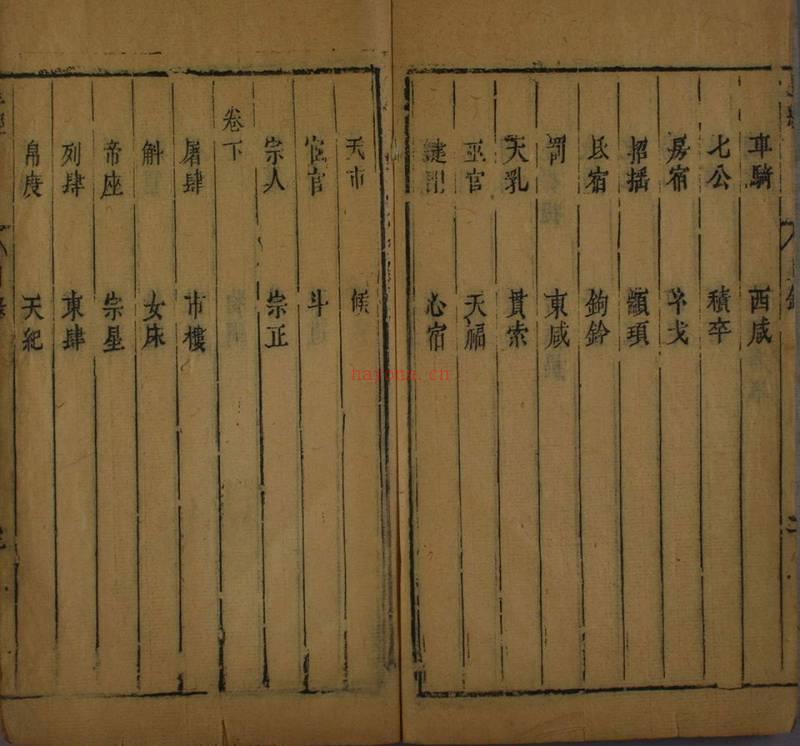 車騎 西咸
七公 積卒
房宿
招搖 顓頊
氐宿 鉤鈐
罰 東咸
天乳 貫索
巫官 天福
鍵閉 心宿
天市 候
宦官 斗
宗人 宗正
卷下
屠肆 市樓
斛 女床
帝座 宗星
列肆 東肆
帛度 天紀
hajona.cn